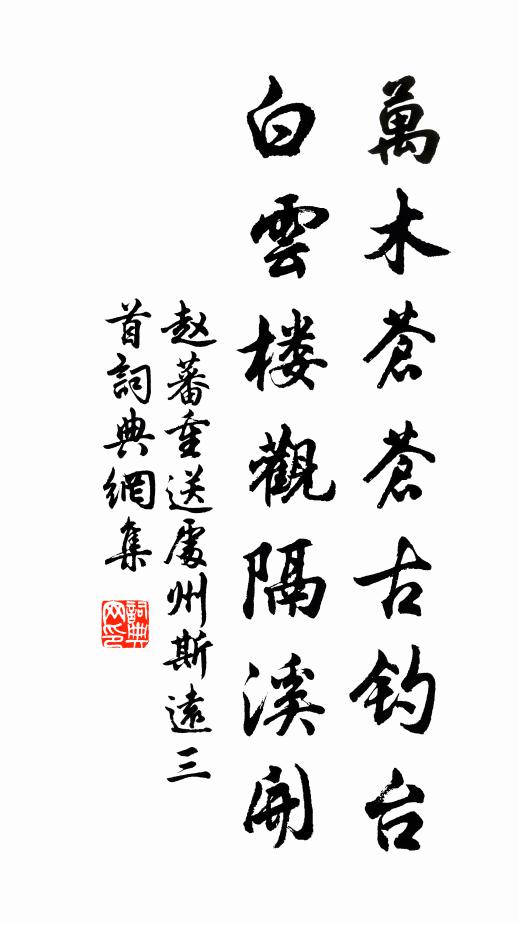 萬木蒼蒼古钓台
白雲楼觀隔溪開
赵蕃重送處州斯遠三
首詞典網集
詞典
网印